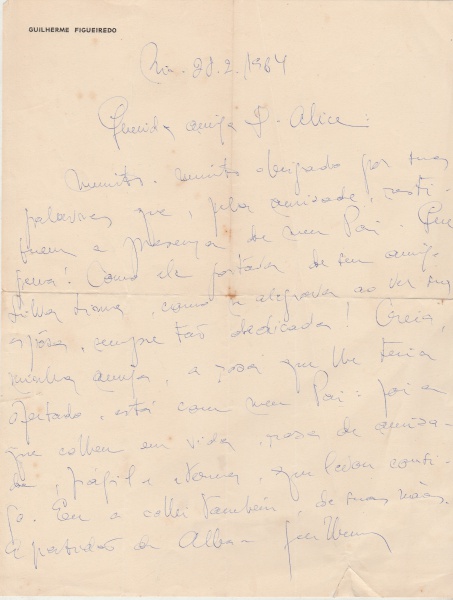 GUILHERME FIGUEIREDO
Rio. 28.2.1964
Querida amiga D. Alice:
Muito, muito obrigado por suas
palavras que, pela amizade, resti-
tuem a presença de meu Pai. Que
pena! Como ele gostava de seu amigo
Silva Lima, como se alegrava ao ver sua
esposa, sempre tão dedicada! Creia,
minha amiga, a rosa que lhe teria
ofertado, está com meu Pai: foi a
que colheu em vida, rosa de amiza-
de, frágil e terna, que levou consi-
go. Eu a colhi também, de suas mãos.
E gratidão de Alba e Guilherme